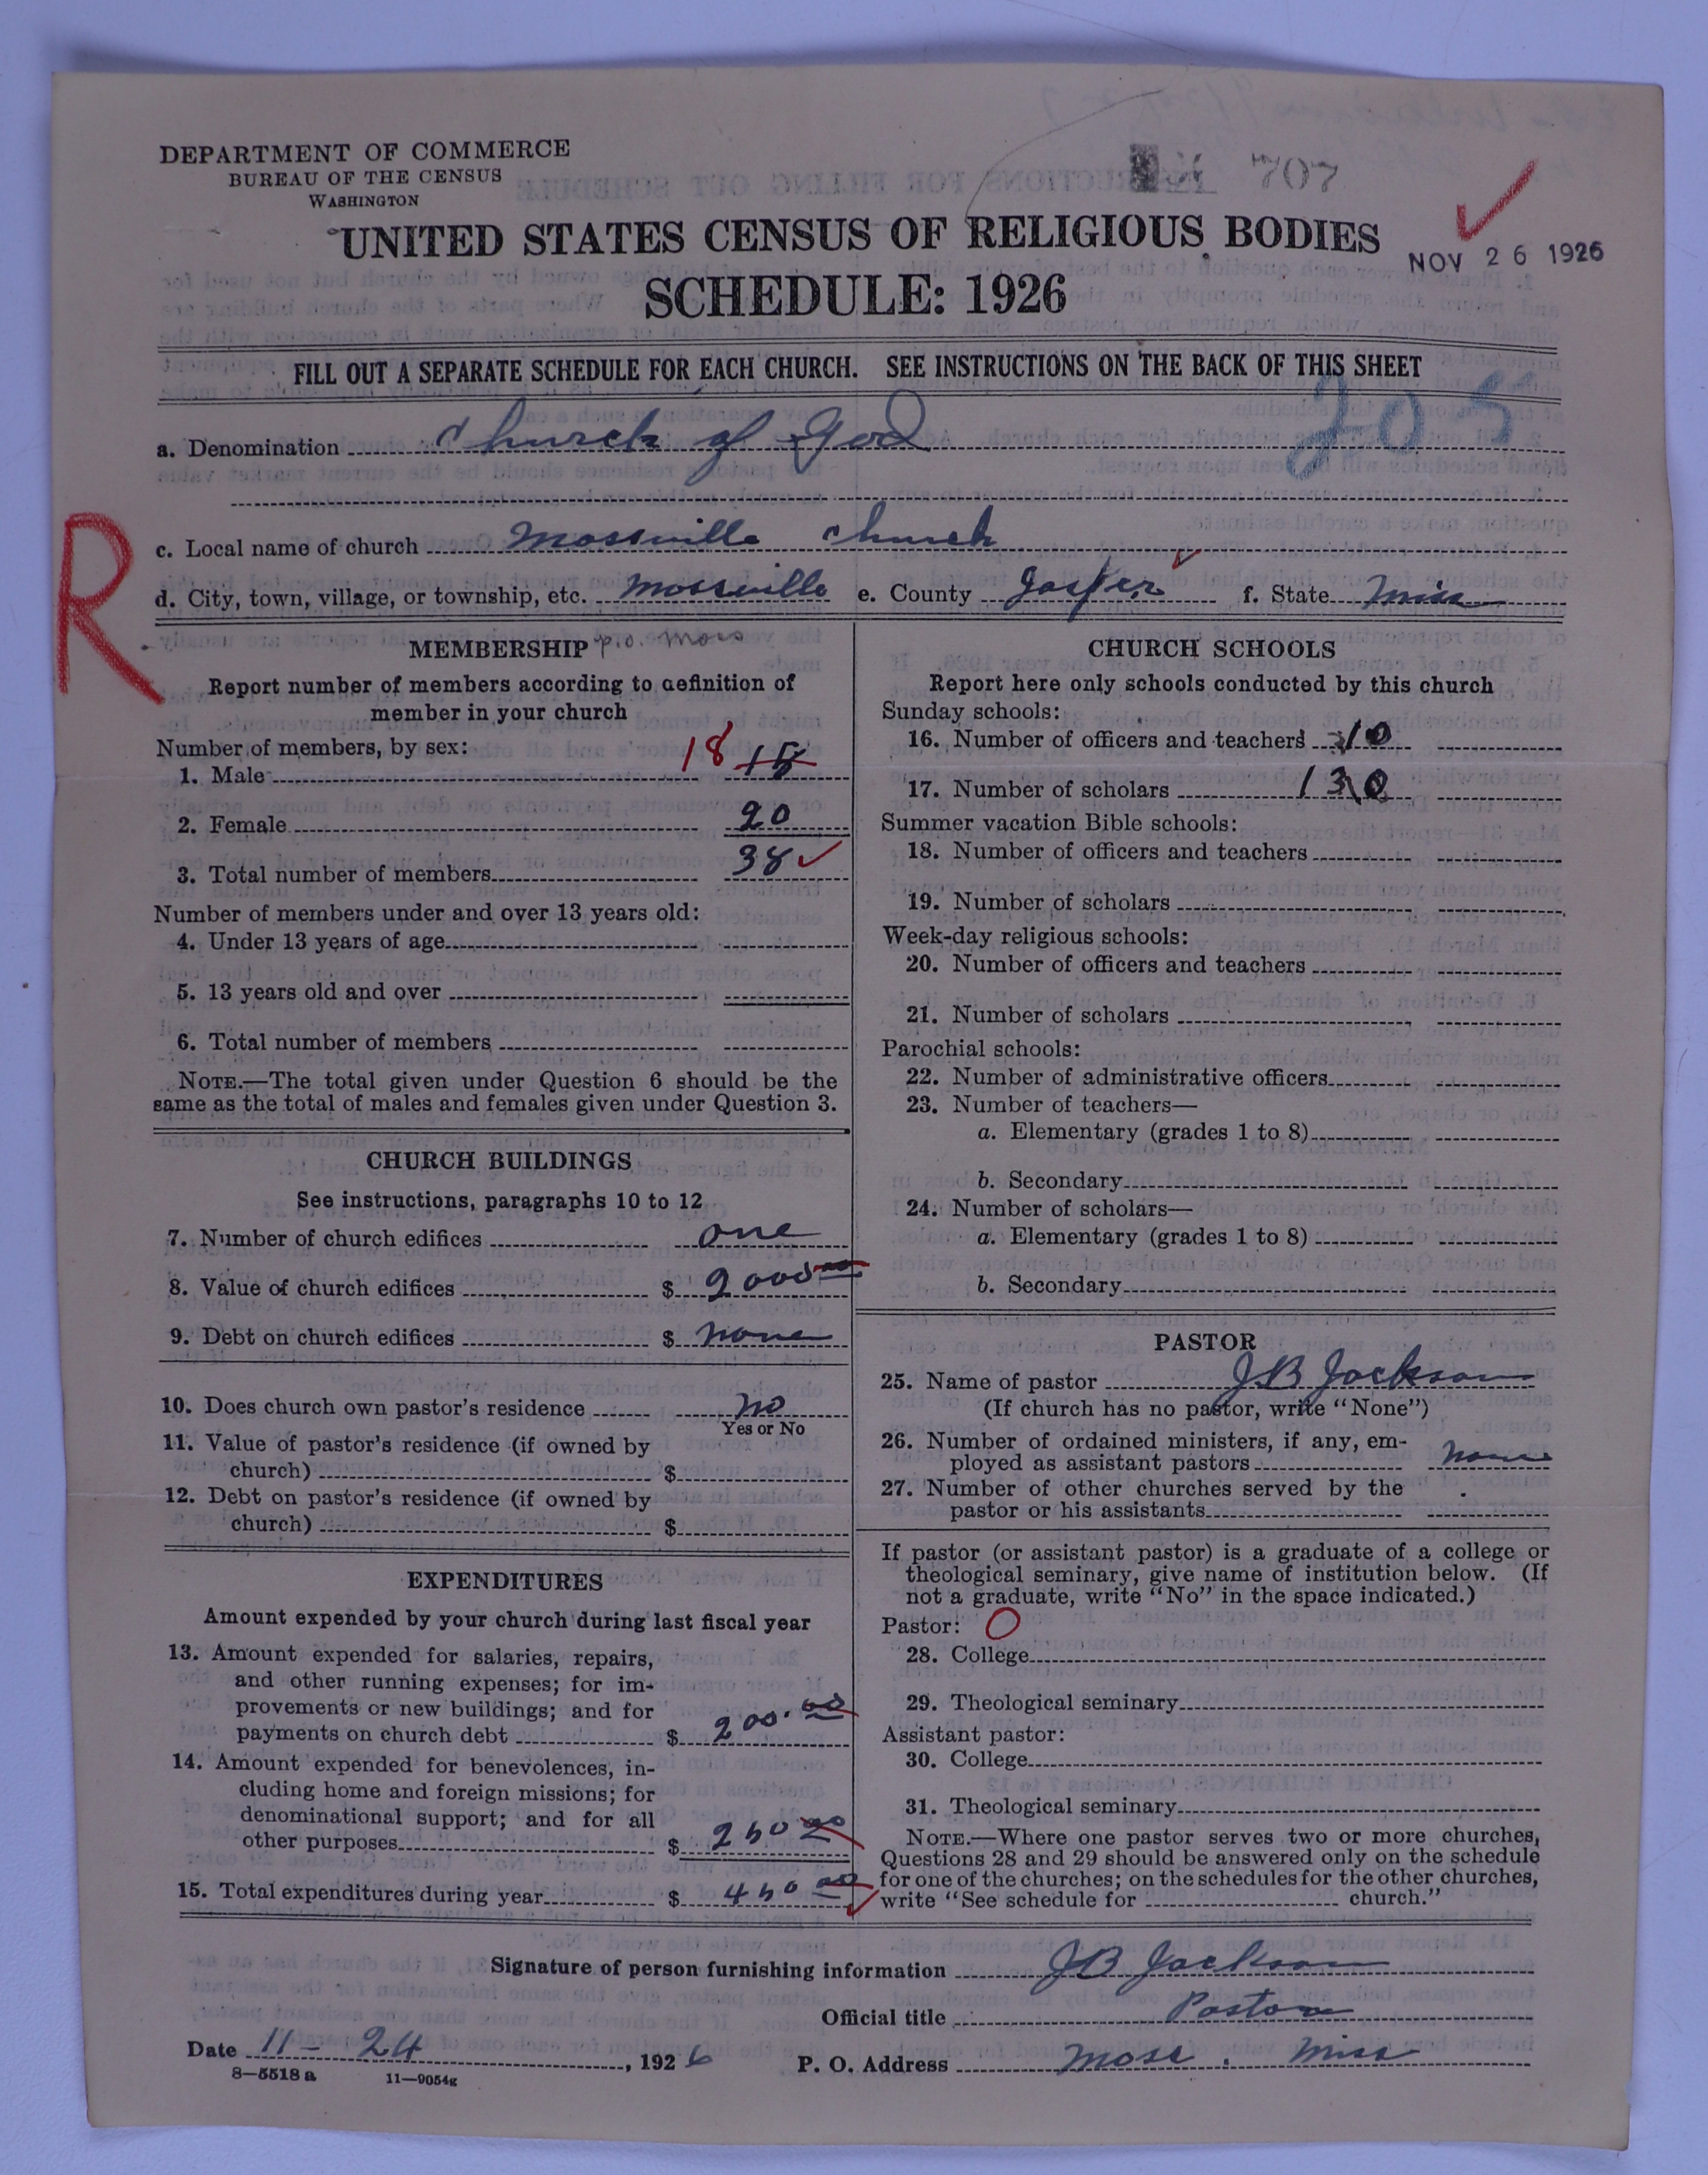 DEPARTMENT OF COMMERCE
BUREAU OF THE CENSUS
WASHINGTON
707
UNITED STATES CENSUS OF RELIGIOUS BODIES
NOV 26 1926
SCHEDULE: 1926
FILL OUT A SEPARATE SCHEDULE FOR EACH CHURCH. SEE INSTRUCTIONS ON THE BACK OF THIS SHEET
205
a. Denomination Church of God
R
c. Local name of church Mossville Church
d. City, town, village, or township, etc. Mossville e. County Jasper f. State Miss
MEMBERSHIP p.o. Moss
Report number of members according to definition of
member in your church
Number of members, by sex:
1. Male 18 18
2. Female 20
3. Total number of members 38
Number of members under and over 13 years old:
4. Under 13 years of age
5. 13 years old and over
6. Total number of members
NOTE.—The total given under Question 6 should be the
same as the total of males and females given under Question 3.
CHURCH BUILDINGS
See instructions, paragraphs 10 to 12
7. Number of church edifices one
8. Value of church edifices $ 2000 00
9. Debt on church edifices $ none
10. Does church own pastor's residence no
Yes or No
11. Value of pastor's residence (if owned by
church) $
12. Debt on pastor's residence (if owned by
church) $
EXPENDITURES
Amount expended by your church during last fiscal year
13. Amount expended for salaries, repairs,
and other running expenses; for im-
provements or new buildings; and for
payments on church debt $ 200.00
14. Amount expended for benevolences, in-
cluding home and foreign missions; for
denominational support; and for all
other purposes $ 250 00
15. Total expenditures during year $ 450 00
CHURCH SCHOOLS
Report here only schools conducted by this church
Sunday schools:
16. Number of officers and teachers 10
17. Number of scholars 130
Summer vacation Bible schools:
18. Number of officers and teachers
19. Number of scholars
Week-day religious schools:
20. Number of officers and teachers
21. Number of scholars
Parochial schools:
22. Number of administrative officers
23. Number of teachers—
a. Elementary (grades 1 to 8)
b. Secondary
24. Number of scholars—
a. Elementary (grades 1 to 8)
b. Secondary
PASTOR
25. Name of pastor J B Jackson
(If church has no pastor, write "None")
26. Number of ordained ministers, if any, em-
ployed as assistant pastors none
27. Number of other churches served by the
pastor or his assistants
If pastor (or assistant pastor) is a graduate of a college or
theological seminary, give name of institution below. (If
not a graduate, write "No" in the space indicated.)
Pastor: O
28. College
29. Theological seminary
Assistant pastor:
30. College
31. Theological seminary
NOTE.—Where one pastor serves two or more churches,
Questions 28 and 29 should be answered only on the schedule
for one of the churches; on the schedules for the other churches,
write "See schedule for church."
Signature of person furnishing information J B Jackson
Official title Pastor
Date 11 - 24, 1926
P. O. Address Moss, Miss
8—5518 a 11—9054g